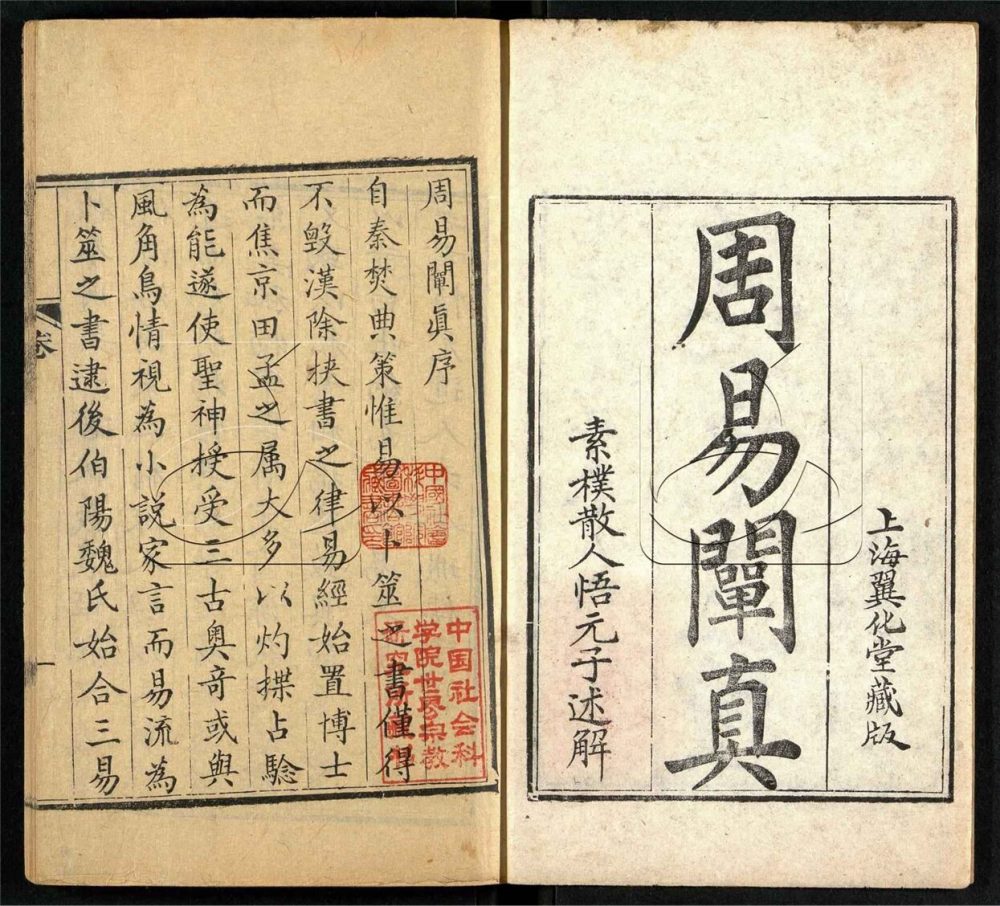 上海翼化堂藏版
周易闡真
素樸散人悟元子述解
周易闡眞序
自秦焚典策惟易以卜筮之書僅得
不毀漢除挾書之律易經始置博士
而焦京田孟之属大多以灼揲占驗
為能遂使聖神授受三古奧奇或與
風角鳥情視為小說家言而易流為
卜筮之書逮後伯陽魏氏始合三易
卷
一
中国社会科
学院世界宗教